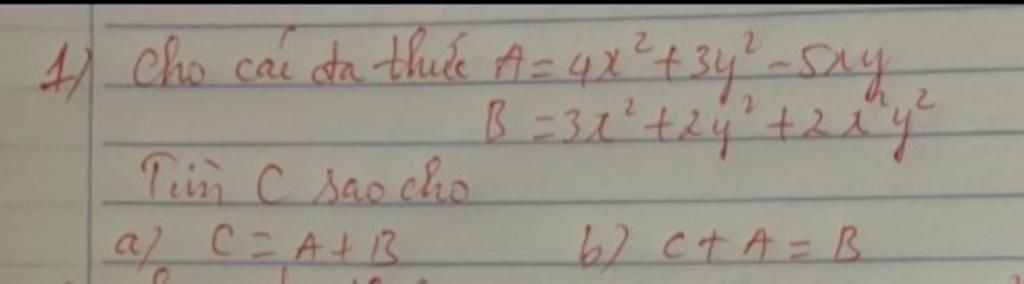 1) Cho các đa thức A = 4x² + 3y² - 5xy
B = 3x² + 2y² + 2x²y²
Tìm C sao cho
a) C = A + B b) C + A = B